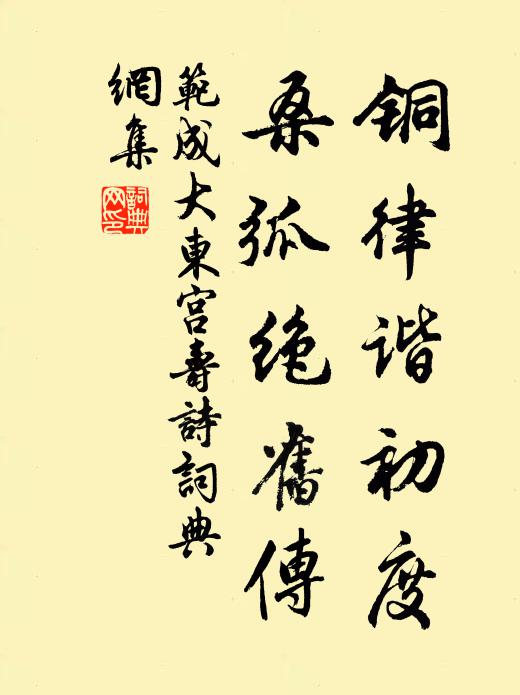 铜律谐初度
桑弧绝旧傳
範成大東宫壽詩詞典
網集
詞典
网印